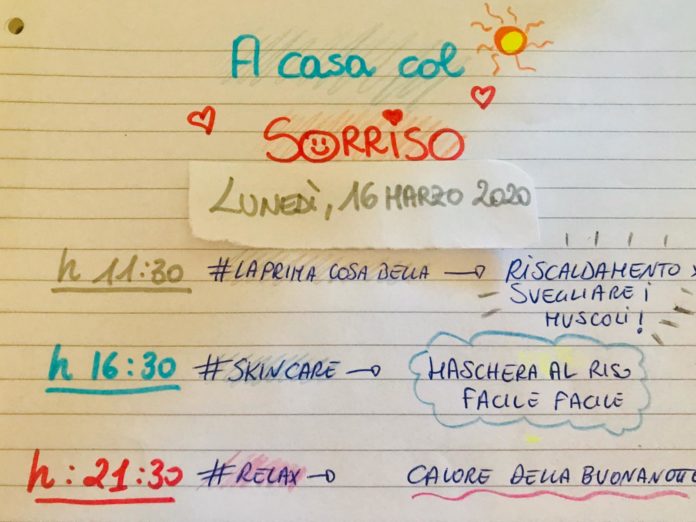 A casa col
SORRISO
LUNEDÌ, 16 MARZO 2020
h 11:30 #LAPRIMA COSA BELLA → RISCALDAMENTO X
SVEGLIARE i
MUSCOLI!
h 16:30 #SKINCARE → MASCHERA AL RISO
FACILE FACILE
h: 21:30 #RELAX → CALORE DELLA BUONANOTTE